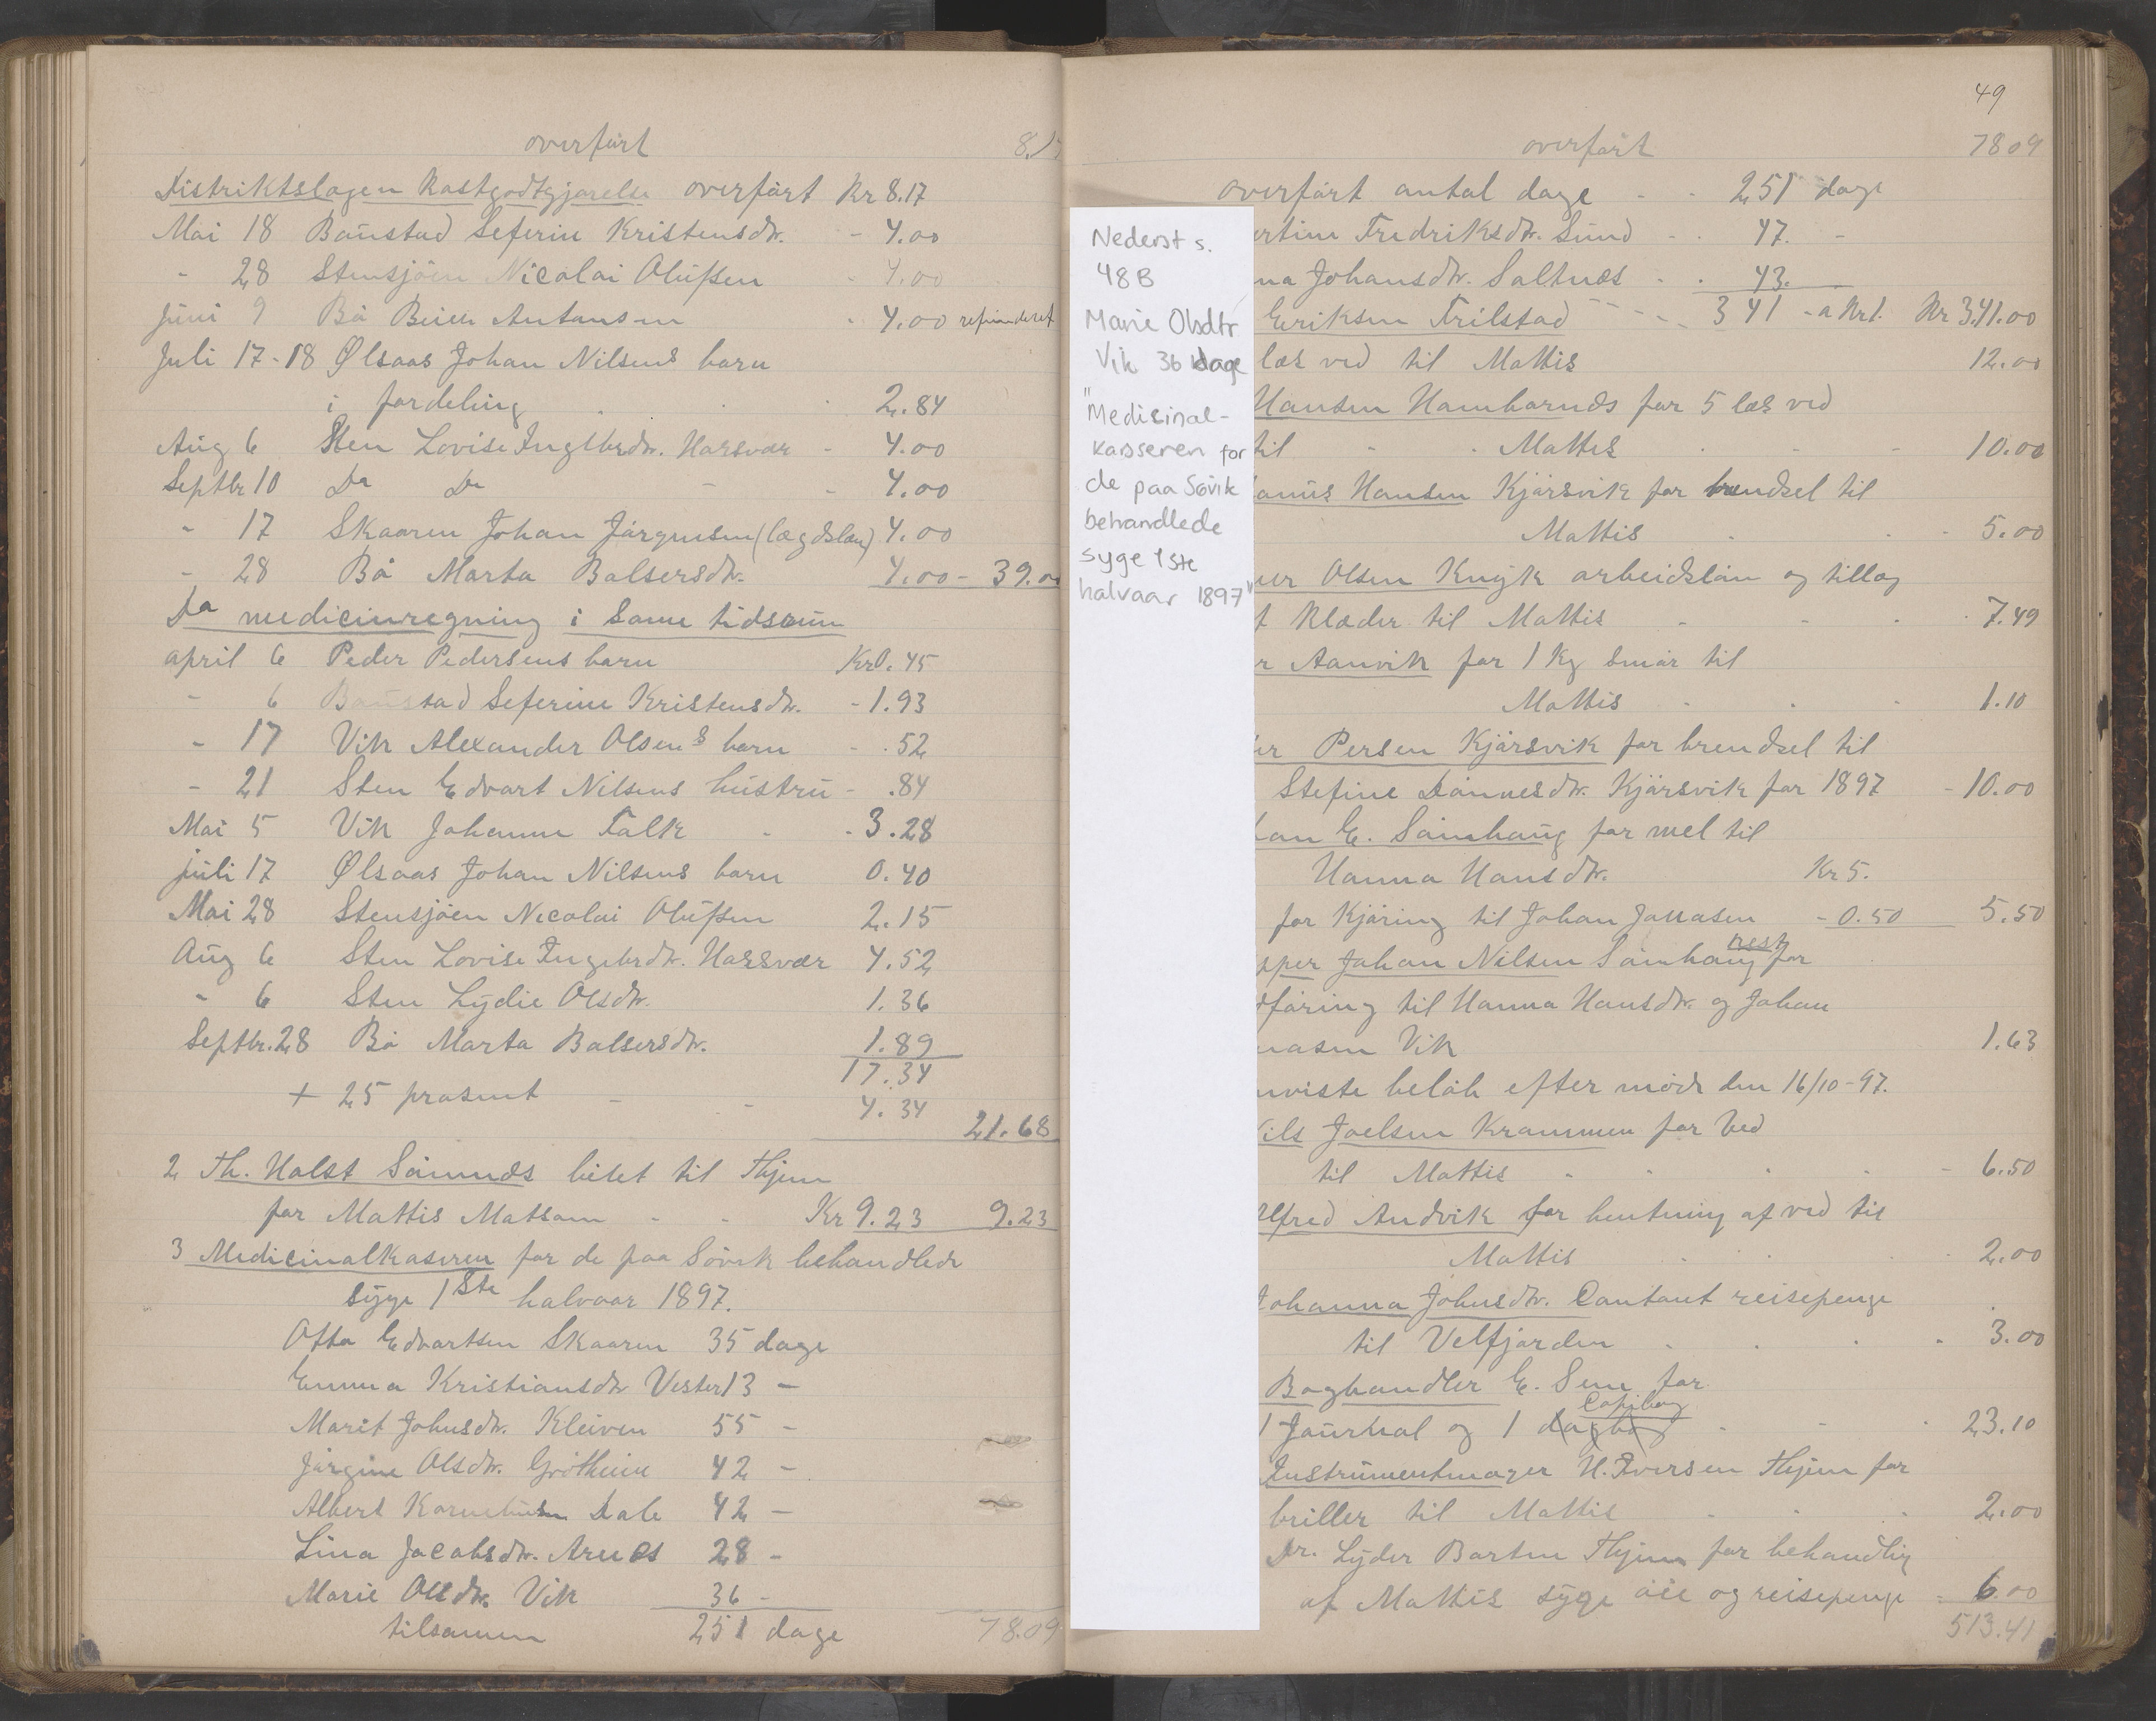 overført 8.17
Distriktslægen Kostgodtgjørelse overført Kr 8.17
Mai 18 Baustad Seferine Kristensdtr. - 4.00
- 28 Stensjøen Nicolai Olufsen - 4.00
Juni 9 Bø Antonsen - 4.00 refunderet
Juli 17-18 Ølsaas Johan Nilsens barn
i fordeling 2.84
Aug 6 Sten Lovise Ingebrdtr. Harsvær - 4.00
Septbr 10 Do Do - - 4.00
- 17 Skaaren Johan Jørgensen (lægdslem) 4.00
- 28 Bø Marta Balsersdtr. 4.00 - 39.01
Do medicinregning i same tidsrum
april 6 Peder Pedersens barn Kr 0.45
- 6 Baustad Seferine Kristensdtr. - 1.93
- 17 Vik Alexander Olsens barn - .52
- 21 Sten Edvart Nilsens hustru - .84
Mai 5 Vik Johanne Falk - . 3.28
juli 17 Ølsaas Johan Nilsens barn 0.40
Mai 28 Stensjøen Nicolai Olufsen 2.15
Aug 6 Sten Lovise Ingebrdtr. Harsvær 4.52
- 6 Sten Lydie Olsdtr. 1.36
Septbr. 28 Bø Marta Balsersdtr. 1.89
17.34
+ 25 prosent - - 4.34
21.68
2 Th. Holst Sømnes bilet til Thjem
for Mattis Matsom - - Kr 9.23 9.23
3 Medicinalkaseren for de paa Søvik behandlede
syge 1ste halvaar 1897.
Otto Edvartsen Skaaren 35 dage
Emma Kristiansdtr Vester 13 -
Marit Johnsdtr. Kleiven 55 -
Jørgine Olsdtr. Grøtheim 42 -
Albert Korneliusen Dale 42 -
Lina Jacobsdtr. Arnes 28 -
Marie Olsdtr. Vik 36 -
tilsamen 251 dage 78.09
Nederst s.
48B
Marie Olsdtr
Vik 36 dage
"Medisinal-
kasseren for
de paa Søvik
behandlede
syge 1ste
halvaar 1897"
49
overført 78 09
overført antal dage - - 251 dage
ertine Fredriksdtr. Sund - . 47. -
na Johansdtr. Saltnes . . 43.
Eriksen Trilstad - - - - 341 - a Kr 1. Kr 341.00
læs ved til Mattis 12.00
Hansen Hambornæs for 5 læs ved
til - . Mattis . . - 10.00
anus Hansen Kjærsvik for brendsel til
Mattis . . - 5.00
er Olsen Knyk arbeidsløn og tillag
t Klæder til Mattis - - . . 7.49
r Aanvik for 1 Kg smør til
Mattis - . . 1.10
er Persen Kjærsvik for brendsel til
Stefine Dønnesdtr. Kjærsvik for 1897 - 10.00
an E. Sømhaug for mel til
Hanna Hansdtr. Kr 5.
for Kjøring til Johan Jonasen - 0.50 5.50
pper Johan Nilsen Sømhaug for
føring til Hanna Hansdtr. og Johan
nasen Vik 1.63
nviste beløb efter møde den 16/10-97.
ils Joelsen Krammen for Ved
til Mattis - . . . - 6.50
lfred Andvik for hentning af ved til
Mattis . . . 2.00
Johanna Johnsdtr. Contant reisepenge
til Velfjorden . . . . 3.00
Boghandler E. Sem for
Copibog
1 Jaurnal og 1 dagbog - - . 23.10
Instrumentmager H. Iversen Thjem for
briller til Mattis - . . 2.00
Dr. Lyder Borten Thjem for behandlig
af Mattis syge øie og reisepenge - 6.00
513.41